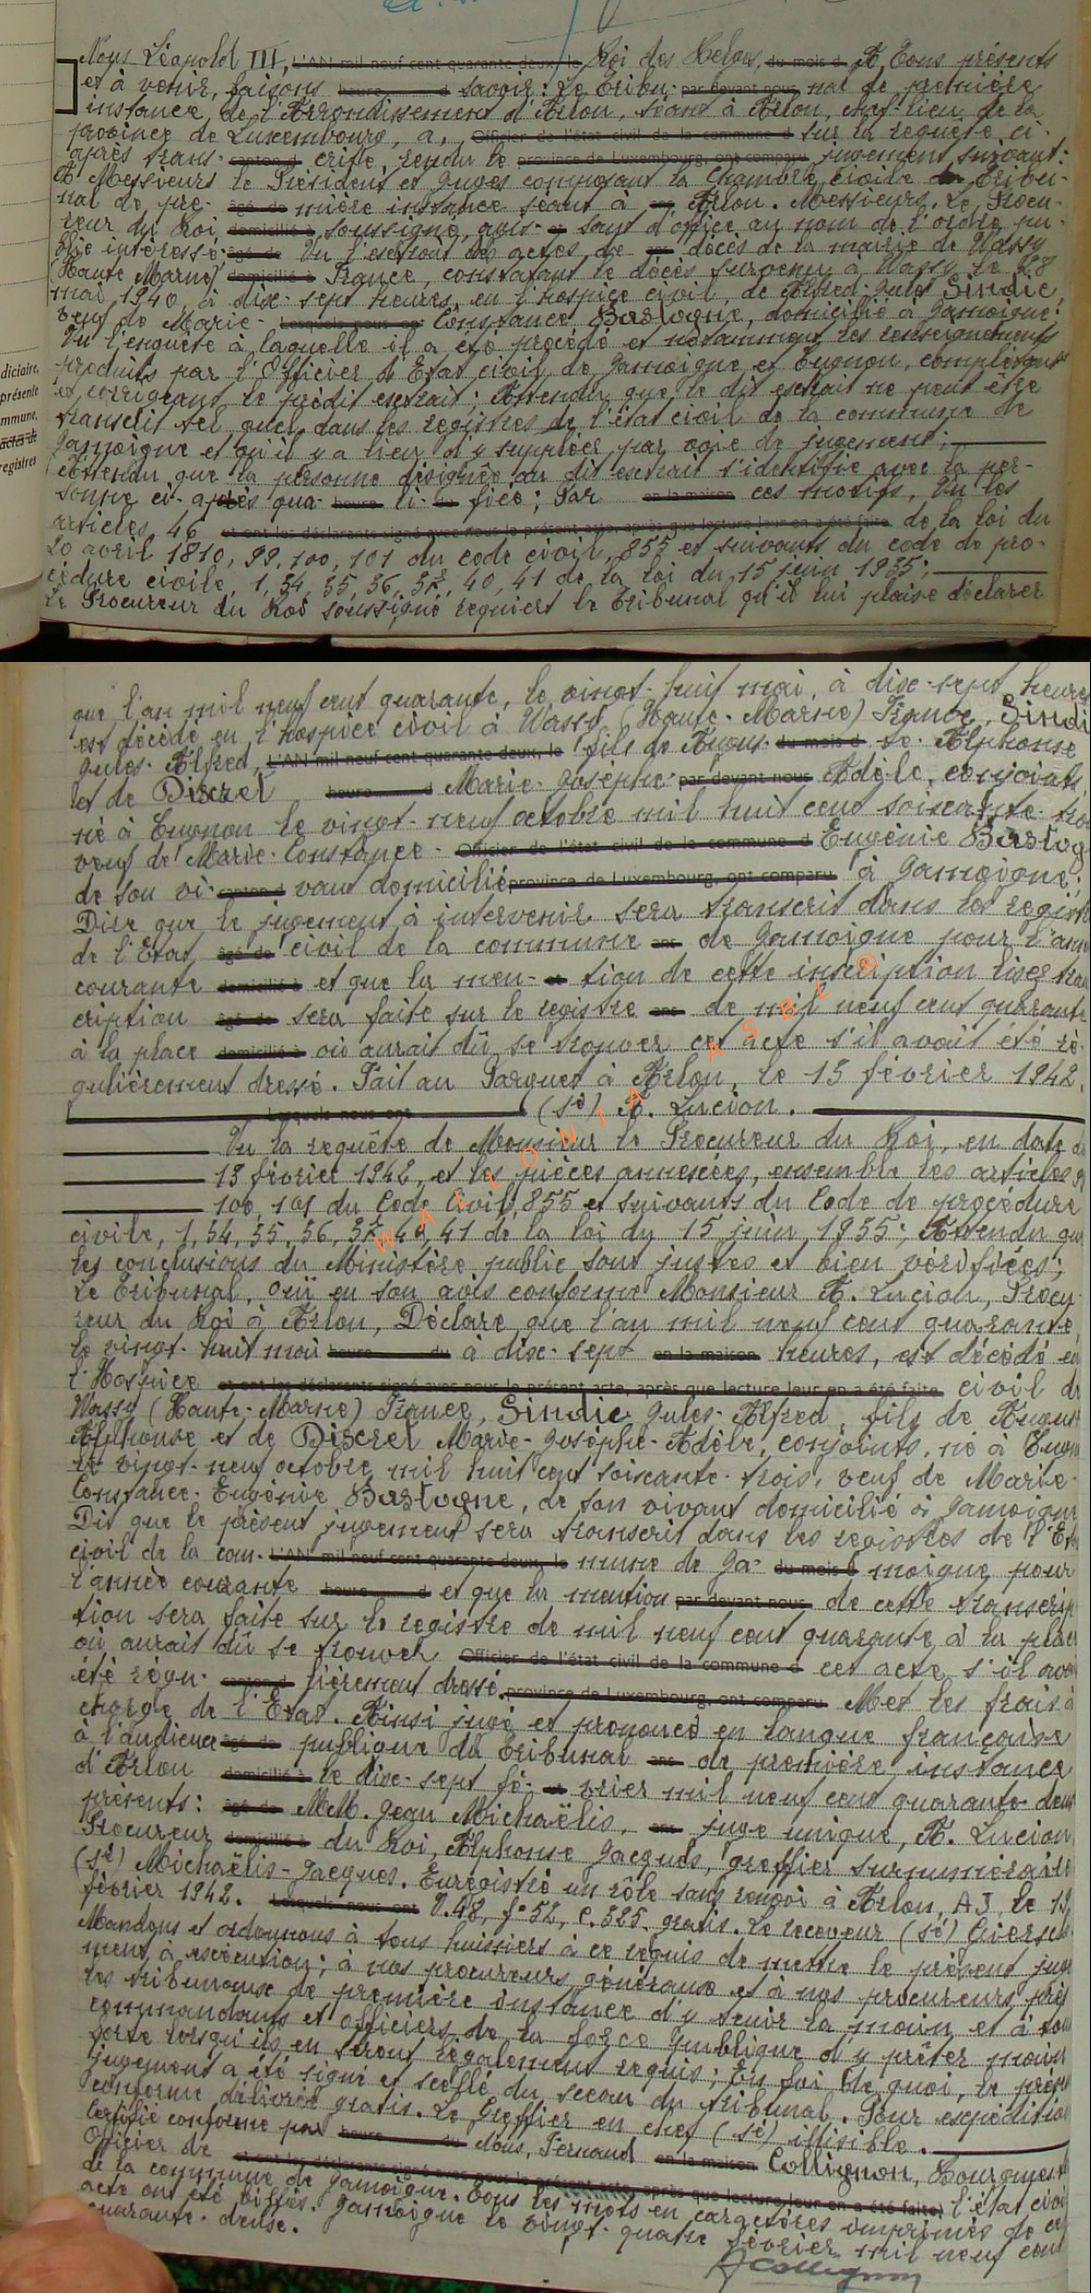 Nous Léopold III, L'AN mil neuf cent quarante deux, le Roi des Belges, du mois d A Tous présents
et à venir, faisons heure d savoir : Le Tribu- par devant nous nal de première
instance de l'Arrondissement d'Arlon, séant à Arlon, chef-lieu de la
province de Luxembourg, a, Officier de l'état civil de la commune d sur la requête ci-
après trans- canton d crite, rendu le province de Luxembourg, ont comparu jugement suivant :
diciaire,
présente
mmune,
acte de
registres
A Messieurs le Président et Juges composant la Chambre civile du Tribu-
nal de pre- âgé de mière instance séant à ans Arlon. Messieurs, Le Procu-
reur du Roi domicilié à soussigné, agis- et sant d'office au nom de l'ordre pu-
blic intéressé. âgé de Vu l'extrait des actes de ans décès de la mairie de Wassy
(Haute Marne) domicilié à France, constatant le décès survenu à Wassy le 28
mai 1940, à dix-sept heures, en l'hospice civil, de Alfred-Jules Sindic,
veuf de Marie- Lesquels nous ont Constance Bastogne, domicilié à Jamoigne :
Vu l'enquête à laquelle il a été procédé et notamment les renseignements
produits par l'Officier d'Etat civil de Jamoigne et Tugnon, complétant
et corrigeant le prédit extrait ; Attendu que le dit extrait ne peut être
transcrit tel quel dans les registres de l'état civil de la commune de
Jamoigne et qu'il y a lieu d'y suppléer par voie de jugement ;
Attendu que la personne désignée au dit extrait s'identifie avec la per-
sonne ci-après qua- heure li- du fiée ; Par en la maison ces motifs, Vu les
articles 46 et ont les déclarants signé avec nous le présent acte, après que lecture leur en a été faite. de la loi du
20 avril 1810, 99, 100, 101 du code civil, 855 et suivants du code de pro-
cédure civile, 1, 34, 35, 36, 37, 40, 41 de la loi du 15 juin 1935 ;
Le Procureur du Roi soussigné requiert le Tribunal qu'il lui plaise déclarer
que l'an mil neuf cent quarante, le vingt-huit mai, à dix-sept heures
est décédé en l'hospice civil à Wassy (Haute-Marne) France, Sindi
Jules-Alfred, L'AN mil neuf cent quarante deux, le fils de Augus- du mois d te-Alphonse
et de Discret heure d Marie-Josèphe- par devant nous Adèle, conjoints,
né à Tugnon le vingt-neuf octobre mil huit cent soixante-tro
veuf de Marie-Constance- Officier de l'état civil de la commune d Eugénie Bastog
de son vi- canton d vant domicilié province de Luxembourg, ont comparu à Jamoigne ;
Dire que le jugement à intervenir sera transcrit dans les regist
de l'Etat âgé de civil de la commune ans de Jamoigne pour l'ann
courante domicilié à et que la men- et tion de cette inscription lisez tran
cription âgé de sera faite sur le registre ans de mil neuf cent quarante
à la place domicilié à où aurait dû se trouver cet acte s'il avait été ré-
gulièrement dressé. Fait au Parquet à Arlon, le 13 février 1942
Lesquels nous ont (sé) A. Lucion.
Vu la requête de Monsieur le Procureur du Roi, en date du
13 février 1942, et les pièces annexées, ensemble les articles 9
100, 101 du Code Civil, 855 et suivants du Code de procédure
civile, 1, 34, 35, 36, 37, 40, 41 de la loi du 15 juin 1935 ; Attendu que
les conclusions du Ministère public sont justes et bien vérifiées ;
Le Tribunal, Ouï en son avis conforme Monsieur A. Lucion, Procu-
reur du Roi à Arlon, Déclare que l'an mil neuf cent quarante,
le vingt-huit mai heure du à dix-sept en la maison heures, est décédé en
l'Hospice et ont les déclarants signé avec nous le présent acte, après que lecture leur en a été faite. civil de
Wassy (Haute-Marne) France, Sindic Jules-Alfred, fils de August
Alphonse et de Discret Marie-Josèphe-Adèle, conjoints, né à Tugn
le vingt-neuf octobre mil huit cent soixante-trois, veuf de Marie-
Constance-Eugénie Bastogne, de son vivant domicilié à Jamoigne
Dit que le présent jugement sera transcrit dans les registres de l'Et
civil de la com- L'AN mil neuf cent quarante deux, le mune de Ja- du mois d moigne pour
l'année courante heure d et que la mention par devant nous de cette transcrip
tion sera faite sur le registre de mil neuf cent quarante, à la place
où aurait dû se trouver Officier de l'état civil de la commune d cet acte s'il avai
été régu- canton d lièrement dressé. province de Luxembourg, ont comparu Met les frais à
charge de l'Etat. Ainsi jugé et prononcé en langue française
à l'audience âgé de publique du Tribunal ans de première instance
d'Arlon domicilié à le dix-sept fé- et vrier mil neuf cent quarante-deux
présents : âgé de MM. Jean Michaëlis, ans juge unique, A. Lucion
Procureur domicilié à du Roi, Alphonse Jacques, greffier surnuméraire
(sé) Michaëlis-Jacques. Enregistré un rôle sans renvoi à Arlon, AJ, le 19
février 1942. Lesquels nous ont V.48, f° 52, c.525. gratis. Le receveur (sé)
Mandons et ordonnons à tous huissiers à ce requis de mettre le présent juge
ment à exécution ; à nos procureurs généraux et à nos procureurs près
les tribunaux de première instance d'y tenir la main et à tous
commandants et officiers de la force publique d'y prêter main
forte lorsqu'ils en seront légalement requis ; En foi de quoi, le prése
jugement a été signé et scellé du sceau du tribunal. Pour expédition
conforme délivrée gratis. Le Greffier en chef (sé) illisible.
Certifié conforme par heure du Nous, Fernand en la maison Collignon, Bourgmest
Officier de et ont les déclarants signé avec nous le présent acte, après que lecture leur en a été faite. l'état civil
de la commune de Jamoigne. Tous les mots en caractères imprimés de cet
acte ont été biffés. Jamoigne le vingt-quatre février mil neuf cent
quarante-deux.
FCollignon
WALLONIA ASBL ©